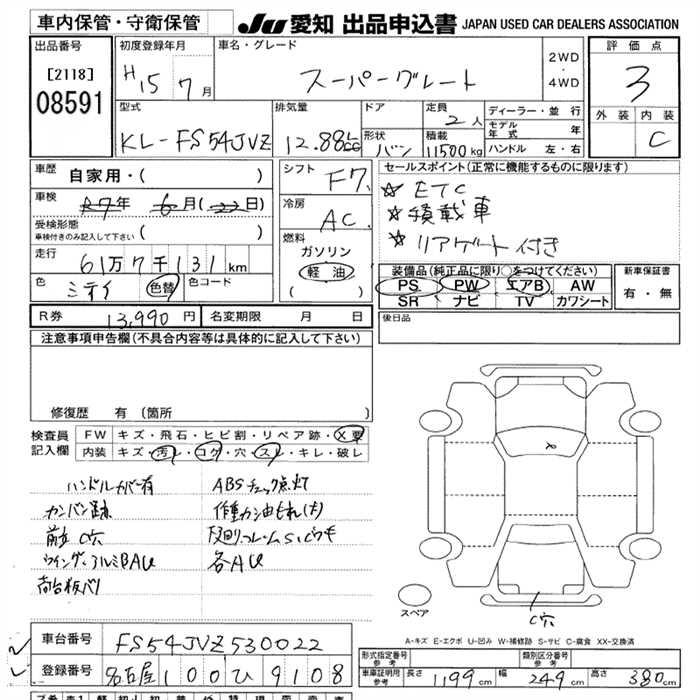 車内保管・守衛保管
JU 愛知 出品申込書 JAPAN USED CAR DEALERS ASSOCIATION
出品番号
[2118]
08591
初度登録年月
H15 7月
車名・グレード
スーパーグレート
2WD
・
4WD
評価点
3
外装 内装
C
型式
KL-FS54JVZ
排気量
12.88
ドア
形状
バン
定員
2人
積載
11500kg
ディーラー・並行
モデル年式 年
ハンドル 左・右
車歴
自家用・( )
車検
R7年 6月(22日)
受検形態
車検付きのみ記入して下さい ( )
走行
61万7千131km
色
色替
色コード
シフト
F7
冷房
AC
燃料
ガソリン
軽油
( )
セールスポイント(正常に機能するものに限ります)
☆ETC
☆積載車
☆リアゲート付き
装備品(純正品に限り○をつけてください)
PS PW エアB AW
SR ナビ TV カワシート
新車保証書
有・無
R券 13,990円
名変期限 月 日
後日品
注意事項申告欄(不具合内容等は具体的に記入して下さい)
修復歴 有(箇所 )
検査員
記入欄
FW キズ・飛石・ヒビ割・リペア跡・X要
内装 キズ・汚レ・コゲ・穴・スレ・キレ・破レ
ハンドルカバー有
ABSチェック点灯
カンバン跡
前 C穴
ウイング・アルミBAU
荷台板バリ
各AU
C穴
スペア
A-キズ E-エクボ U-凹み W-補修跡 S-サビ C-腐食 XX-交換済
車台番号 FS54JVZ530022
登録番号 名古屋100ひ9108
型式指定番号
参考
類別区分番号
参考
車庫証明用
参考
長さ 1199cm
幅 249cm
高さ 380cm